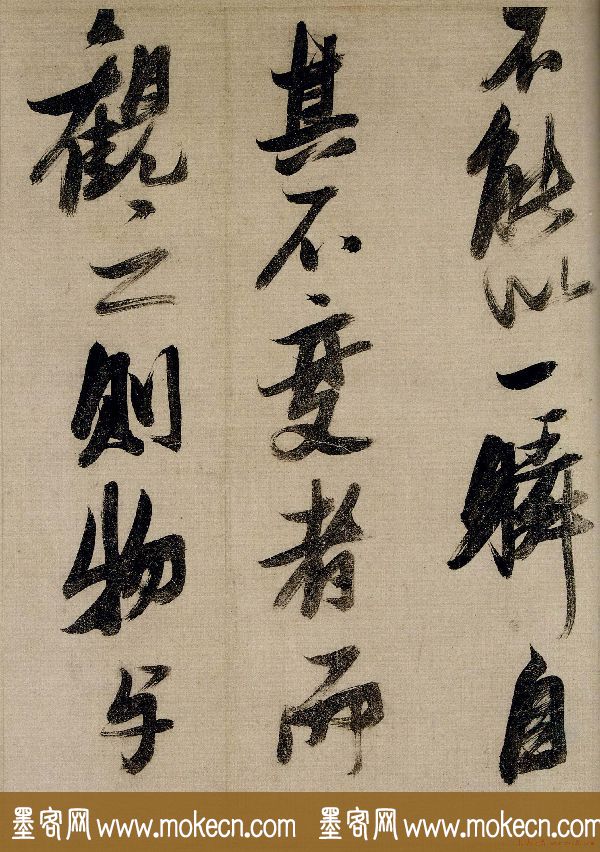 不能以一瞬自
其不变者而
觀之则物与
墨客网 www.mokecn.com 墨客网 www.mokecn.com